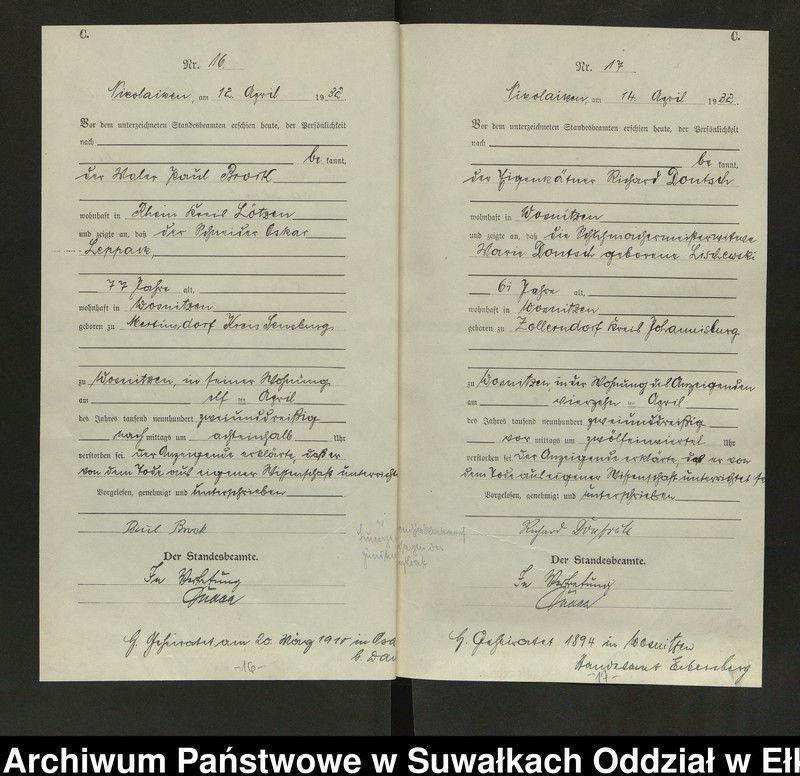 C.
Nr. 16.
Nikolaiken, am 12. April 1932
Vor dem unterzeichneten Standesbeamten erschien heute, der Persönlichkeit
nach
be kannt,
der Maler Paul Brock
wohnhaft in Rhein Kreis Lötzen
und zeigte an, daß der Schneider Oskar
Leppack,
77 Jahre alt,
wohnhaft in Wosnitzen
geboren zu Mertinsdorf Kreis Sensburg
zu Wosnitzen, in seiner Wohnung
am elf ten April
des Jahres tausend neunhundert zweiunddreißig
nach mittags um achteinhalb Uhr
verstorben sei. Der Anzeigende erklärte, daß er
von dem Tode aus eigener Wissenschaft unterrichtet
Vorgelesen, genehmigt und unterschrieben
Paul Brock
Der Standesbeamte.
In Vertretung
G. Geheiratet am 20. März 1910 in
-16-
C.
Nr. 17
Nikolaiken am 14. April 1932.
Vor dem unterzeichneten Standesbeamten erschien heute, der Persönlichkeit
nach
be kannt,
der Eigenkätner Richard Dontsch
wohnhaft in Wosnitzen
und zeigte an, daß die Schuhmachermeisterwitwe
Marie Dontsch geborene Lischewski
61 Jahre alt,
wohnhaft in Wosnitzen
geboren zu Zollerndorf Kreis Johannisburg
zu Wosnitzen in der Wohnung des Anzeigenden
am vierzehn ten April
des Jahres tausend neunhundert zweiunddreißig
vor mittags um zwölfeinviertel Uhr
verstorben sei. Der Anzeigende erklärte, daß er von
dem Tode aus eigener Wissenschaft unterrichtet se
Vorgelesen, genehmigt und unterschrieben
Richard Dontsch
Der Standesbeamte.
In Vertretung
G Geheiratet 1894 in Wosnitzen
Standesamt Eckersberg
-17-
Archiwum Państwowe w Suwałkach Oddział w Ełk